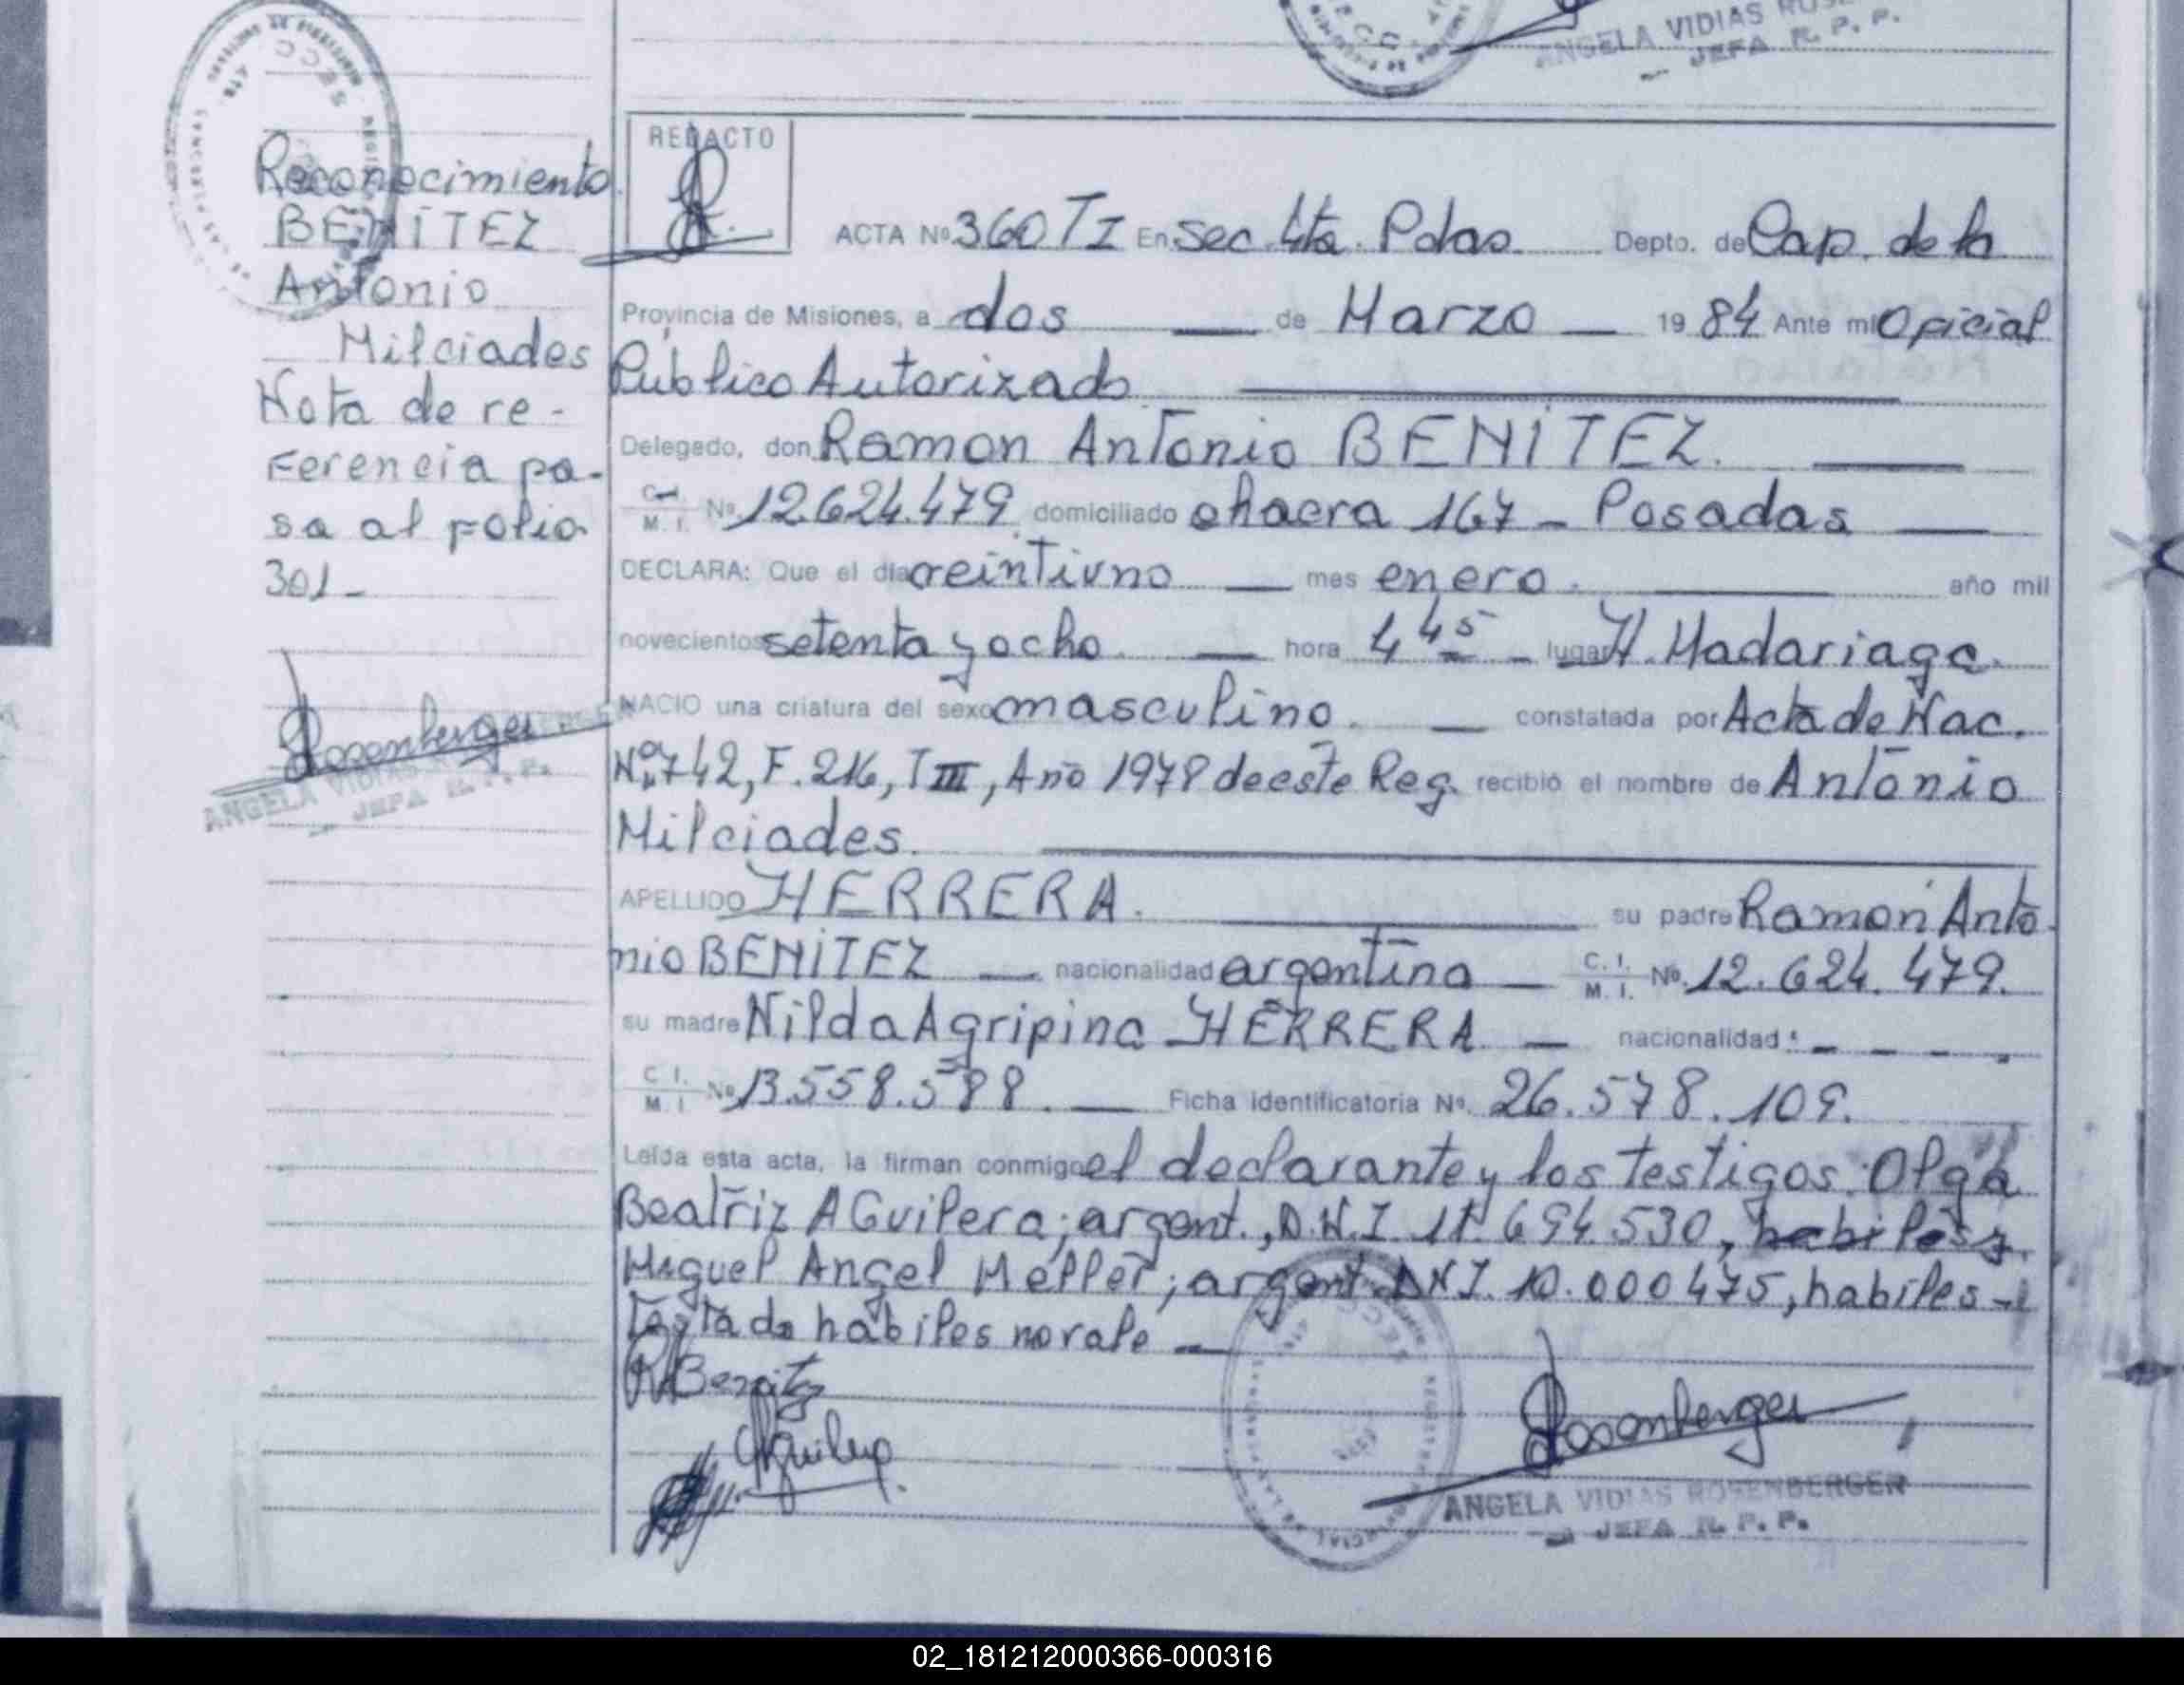 ANGELA VIDIAS
JEFA R. P. P.
Reconocimiento
BENÍTEZ
Antonio
Milciades
Nota de re-
ferencia pa-
sa al folio
301_
Rosenberger
ANGELA VIDIAS
JEFA R. P. P.
REDACTO
ACTA Nº 360 TI En Sec. 4ta. Pdas. Depto. de Cap. de la
Provincia de Misiones, a dos de Marzo 19 84 Ante mi Oficial
Público Autorizado
Delegado, don Ramon Antonio BENÍTEZ.
C.I. M. I. Nº 12.624.479 domiciliado chacra 167 - Posadas
DECLARA: Que el día veintiuno mes enero. año mil
novecientos setenta y ocho. hora 4 45 lugar H. Madariaga.
NACIO una criatura del sexo masculino. constatada por Acta de Nac.
Nº 742, F. 216, T III, Año 1978 de este Reg. recibió el nombre de Antonio
Milciades.
APELLIDO HERRERA. su padre Ramón Anto
nio BENÍTEZ nacionalidad argentina C. I. M. I. Nº 12.624.479.
su madre Nilda Agripina HERRERA nacionalidad
C I. M. I Nº 13.558.588. Ficha identificatoria Nº. 26.578.109.
Leída esta acta, la firman conmigo el declarante y los testigos: Olga
Beatriz AGuilera; argent., D.N.I. 11.694.530, habiles y
Miguel Angel Meller; argent. DNI. 10.000475, habiles -
Testado habiles no vale
RABenitez
Aguilera
Rosenberger
ANGELA VIDIAS ROSENBERGER
JEFA R. P. P.
02_181212000366-000316